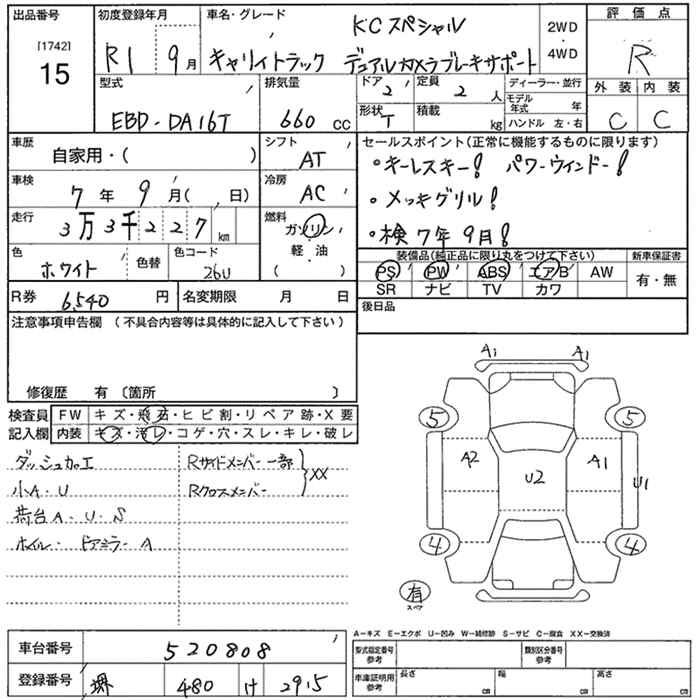 出品番号 [1742] 15
初度登録年月 R1 9月
車名・グレード KCスペシャル
キャリイトラック デュアルカメラブレーキサポート
2WD
4WD
評価点 R
外装 内装
C C
型式 EBD-DA16T
排気量 660 cc
ドア 2
定員 2 人
形状 T
積載 kg
ディーラー・並行
モデル年式 年
ハンドル 左・右
車歴 自家用・( )
シフト AT
車検 7年 9月( 、 日)
冷房 AC
走行 3万3千227 km
燃料 ガソリン
軽油
( )
色 ホワイト 色替
色コード 26U
セールスポイント(正常に機能するものに限ります)
・キーレスキー! パワーウィンドー!
・メッキグリル!
・検7年9月!
装備品(純正品に限り丸をつけて下さい)
新車保証書
PS PW ABS エアB AW
SR ナビ TV カワ
有・無
R券 6,540 円
名変期限 月 日
後日品
注意事項申告欄 (不具合内容等は具体的に記入して下さい)
修復歴 有 〔箇所 〕
検査員記入欄
FW キズ・飛石・ヒビ割・リペア跡・X要
内装 キズ・汚レ・コゲ・穴・スレ・キレ・破レ
ダッシュカエ
小A・U
荷台A・U・S
ホイル・ドアミラーA
Rサイドメンバー一部
Rクロスメンバー
XX
A1 A1
5 5
A2 U2 A1 U1
4 4
有
スペア
A1 A1
A−キズ E−エクボ U−凹み W−補修跡 S−サビ C−腐食 XX−交換済
車台番号 520808
登録番号 堺 480 け 2915
型式指定番号 参考
類別区分番号 参考
車庫証明用 参考
長さ cm
幅 cm
高さ cm